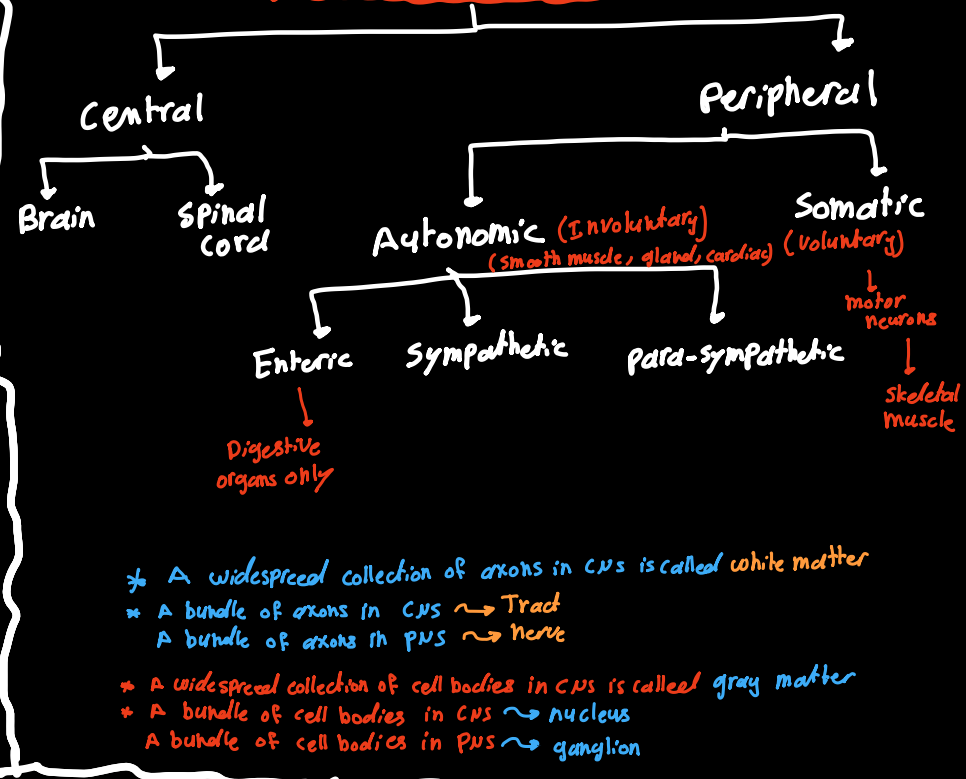 Central
Peripheral
Brain
Spinal
cord
Autonomic (Involuntary)
(smooth muscle, gland, cardiac)
Somatic
(voluntary)
motor
neurons
skeletal
muscle
Enteric
Sympathetic
Para-sympathetic
Digestive
organs only
* A widespreed collection of axons in CNS is called white matter
* A bundle of axons in CNS → Tract
A bundle of axons in PNS → nerve
* A widespreed collection of cell bodies in CNS is called gray matter
* A bundle of cell bodies in CNS → nucleus
A bundle of cell bodies in PNS → ganglion